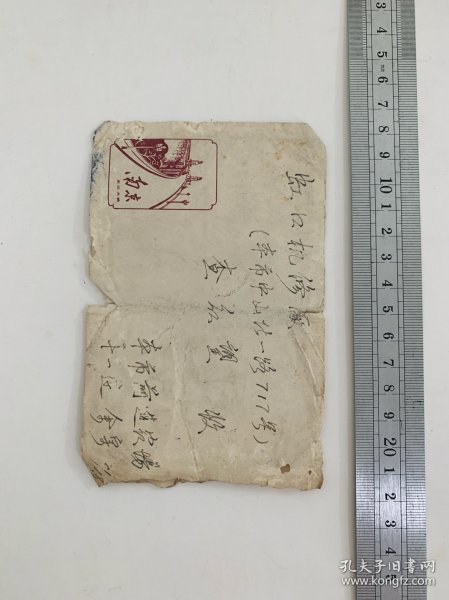 虹口机修厂
(本市中山北一路717号)
查 收
本市前进农场
十一连 李寄
南京
3
4
5
6
7
8
9
10
1
2
3
4
5
6
7
8
9
20
1
2
3
4
孔夫子旧书网
www.kongfz.com